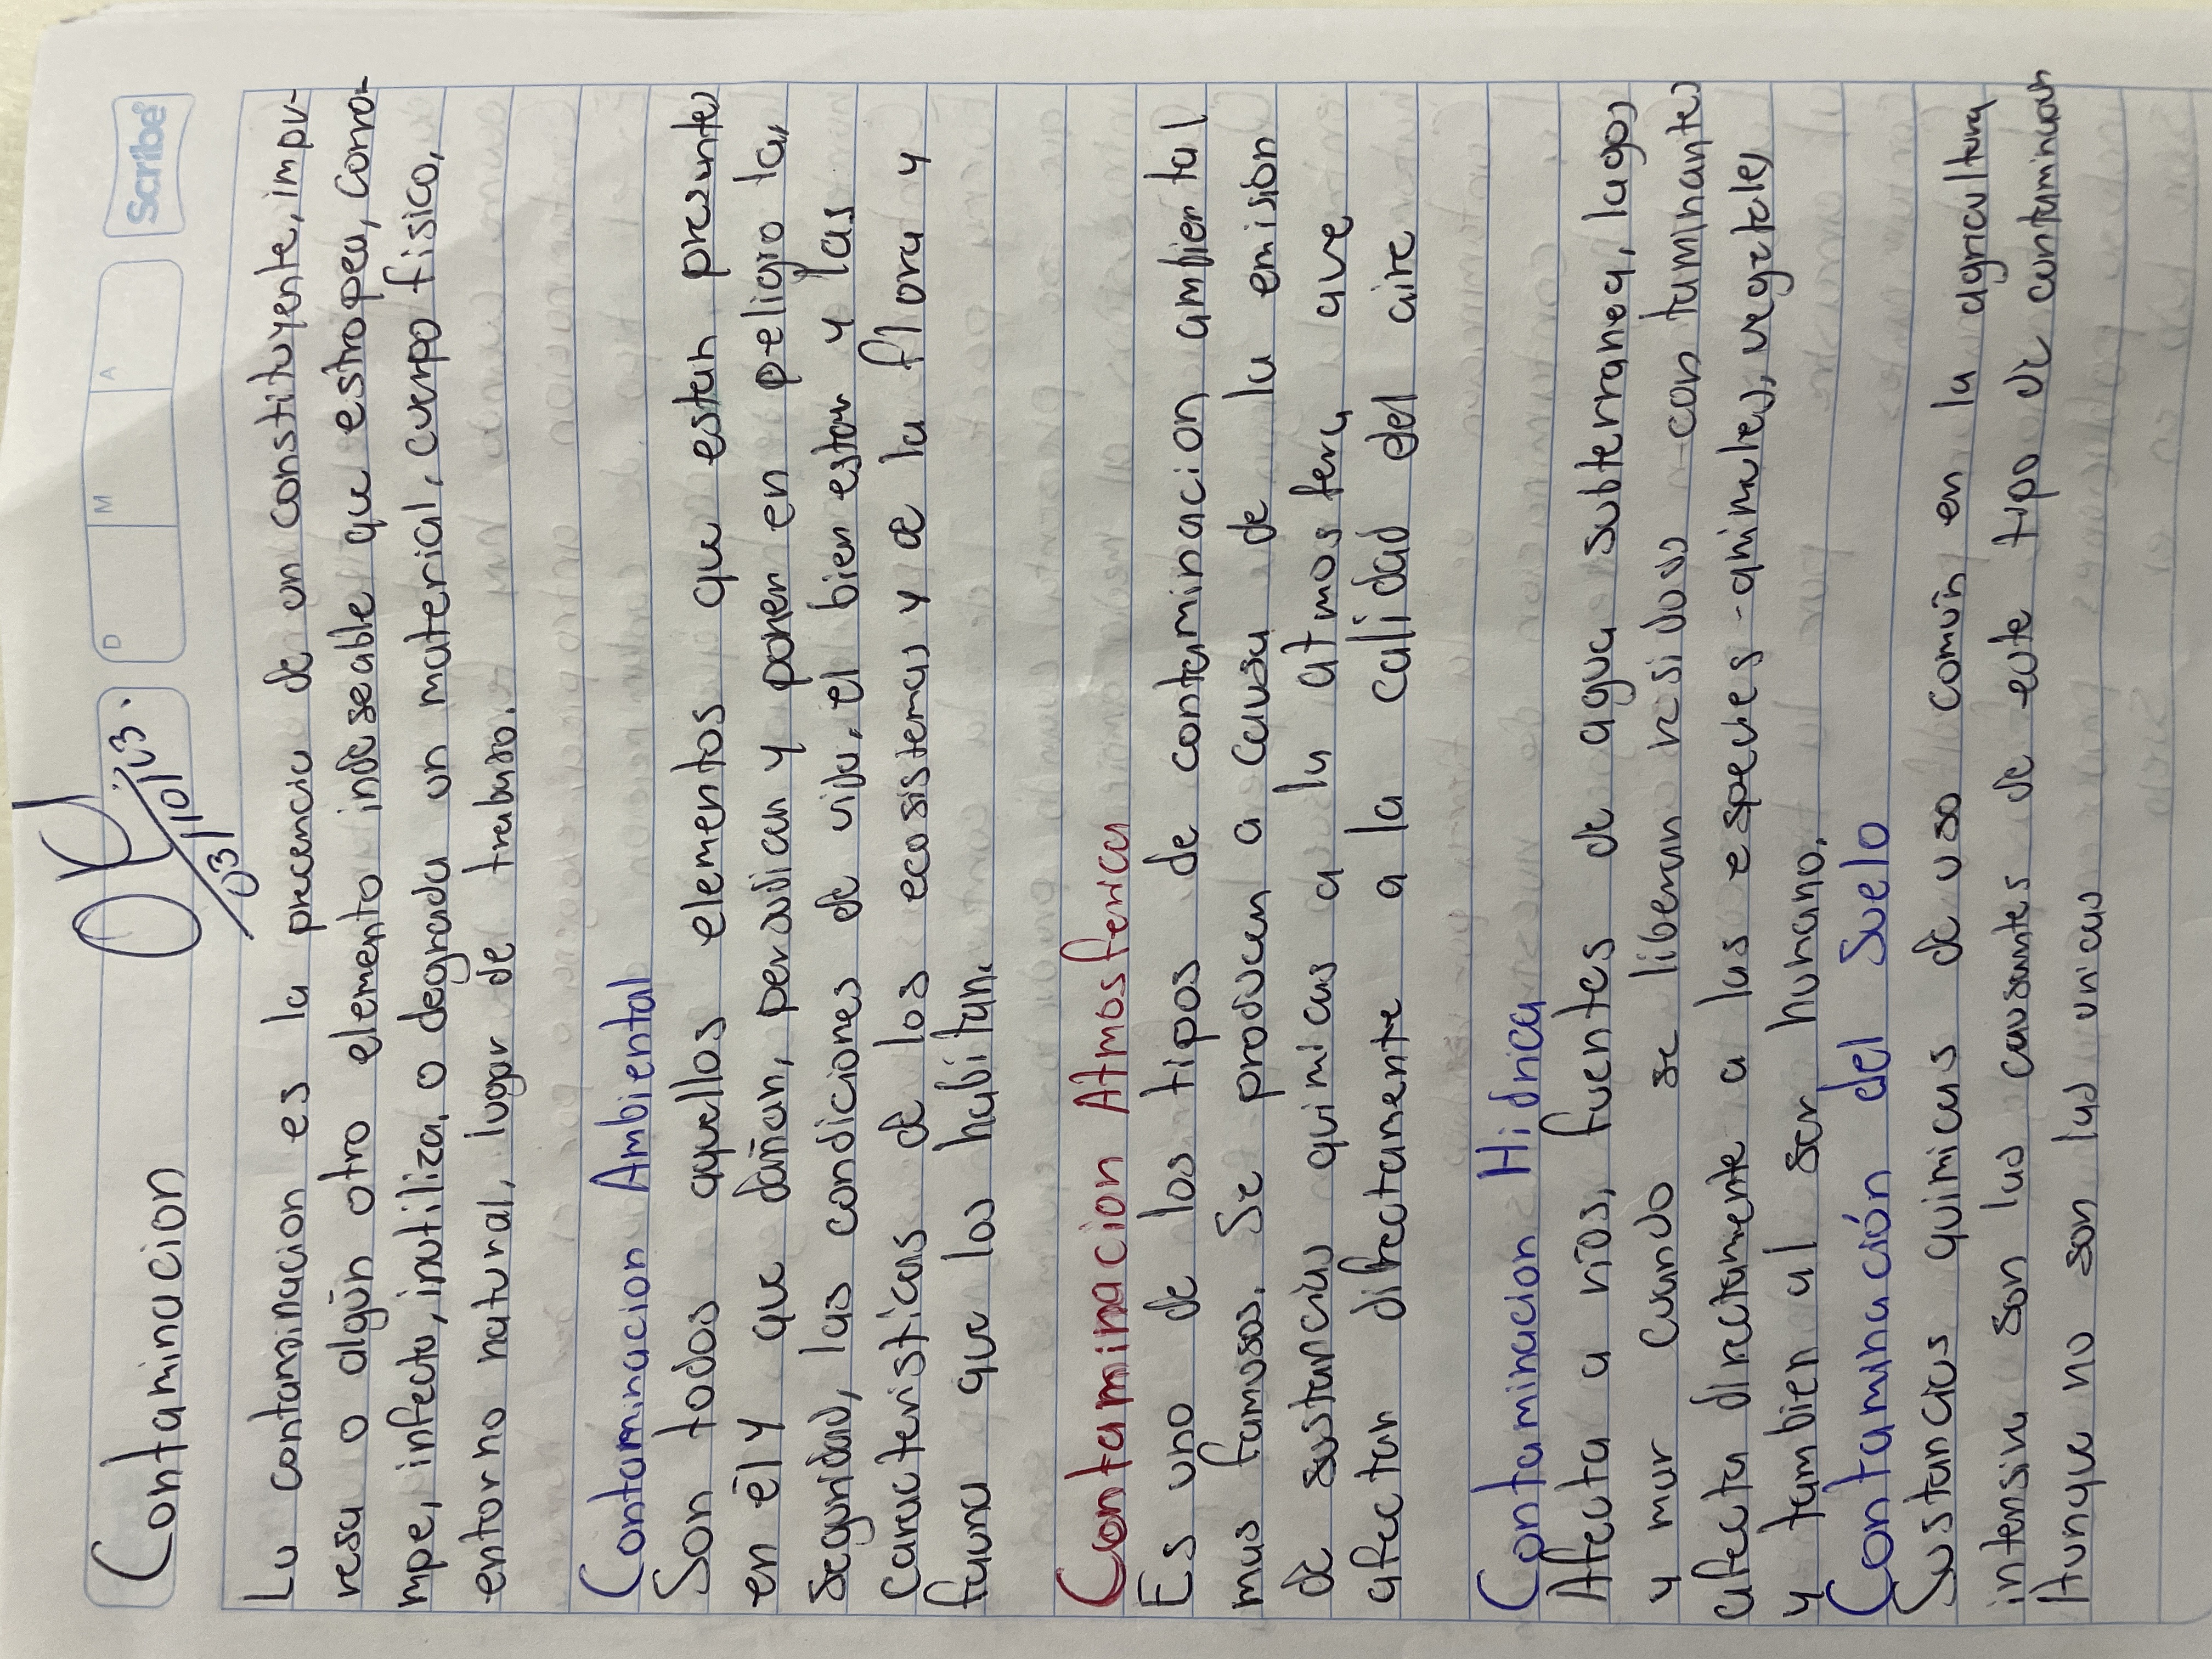 Contaminacion
03/10/23.
D M A
Scribe
La contaminacion es la precencia de un constituyente, impu-
resa o algún otro elemento indeseable que estropea, corro-
mpe, infecta, inutiliza, o degrada un material, cuerpo fisico,
entorno natural, lugar de trabajo.
Contaminacion Ambiental
Son todos aquellos elementos que estan presentes
en él y que dañan, perjudican y ponen en peligro la,
seguridad, las condiciones de vida, el bien estar y las
caracteristicas de los ecosistemas y de la flora y
fauna que los habitan.
Contaminacion Atmosferica
Es uno de los tipos de contaminacion ambiental
mas famosos. Se producen a causa de la emision
de sustancias quimicas a la atmosfera que
afectan directamente a la calidad del aire
Contaminacion Hidrica
Afecta a rios, fuentes de agua subterranea, lagos
y mar cuando se liberan residuos contaminantes
afecta directamente a las especies - animales, vegetales
y tambien al ser humano.
Contaminación del Suelo
Sustancias quimicas de uso común en la agricultura
intensiva son las causantes de este tipo de contaminacion
Aunque no son las unicas